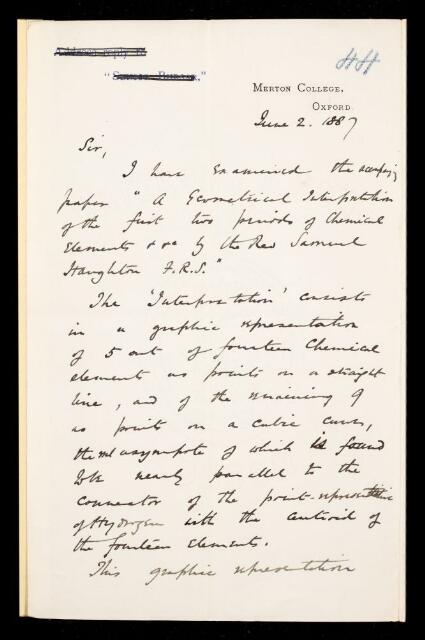 Address reply to
"Science Bureau,"
HH
MERTON COLLEGE,
OXFORD
June 2. 1887
Sir,
I have examined the accompg
paper "A Geometrical Interpretation
of the first two periods of Chemical
Elements &c by the Rev Samuel
Haughton F.R.S."
The 'Interpretation' consists
in a graphic representation
of 5 out of fourteen Chemical
elements as points on a straight
line, and of the remaining 9
as points on a cubic curve,
the rel asymptote of which is found
to be nearly parallel to the
connector of the point-representative
of Hydrogen with the centroid of
the fourteen elements.
This graphic representation